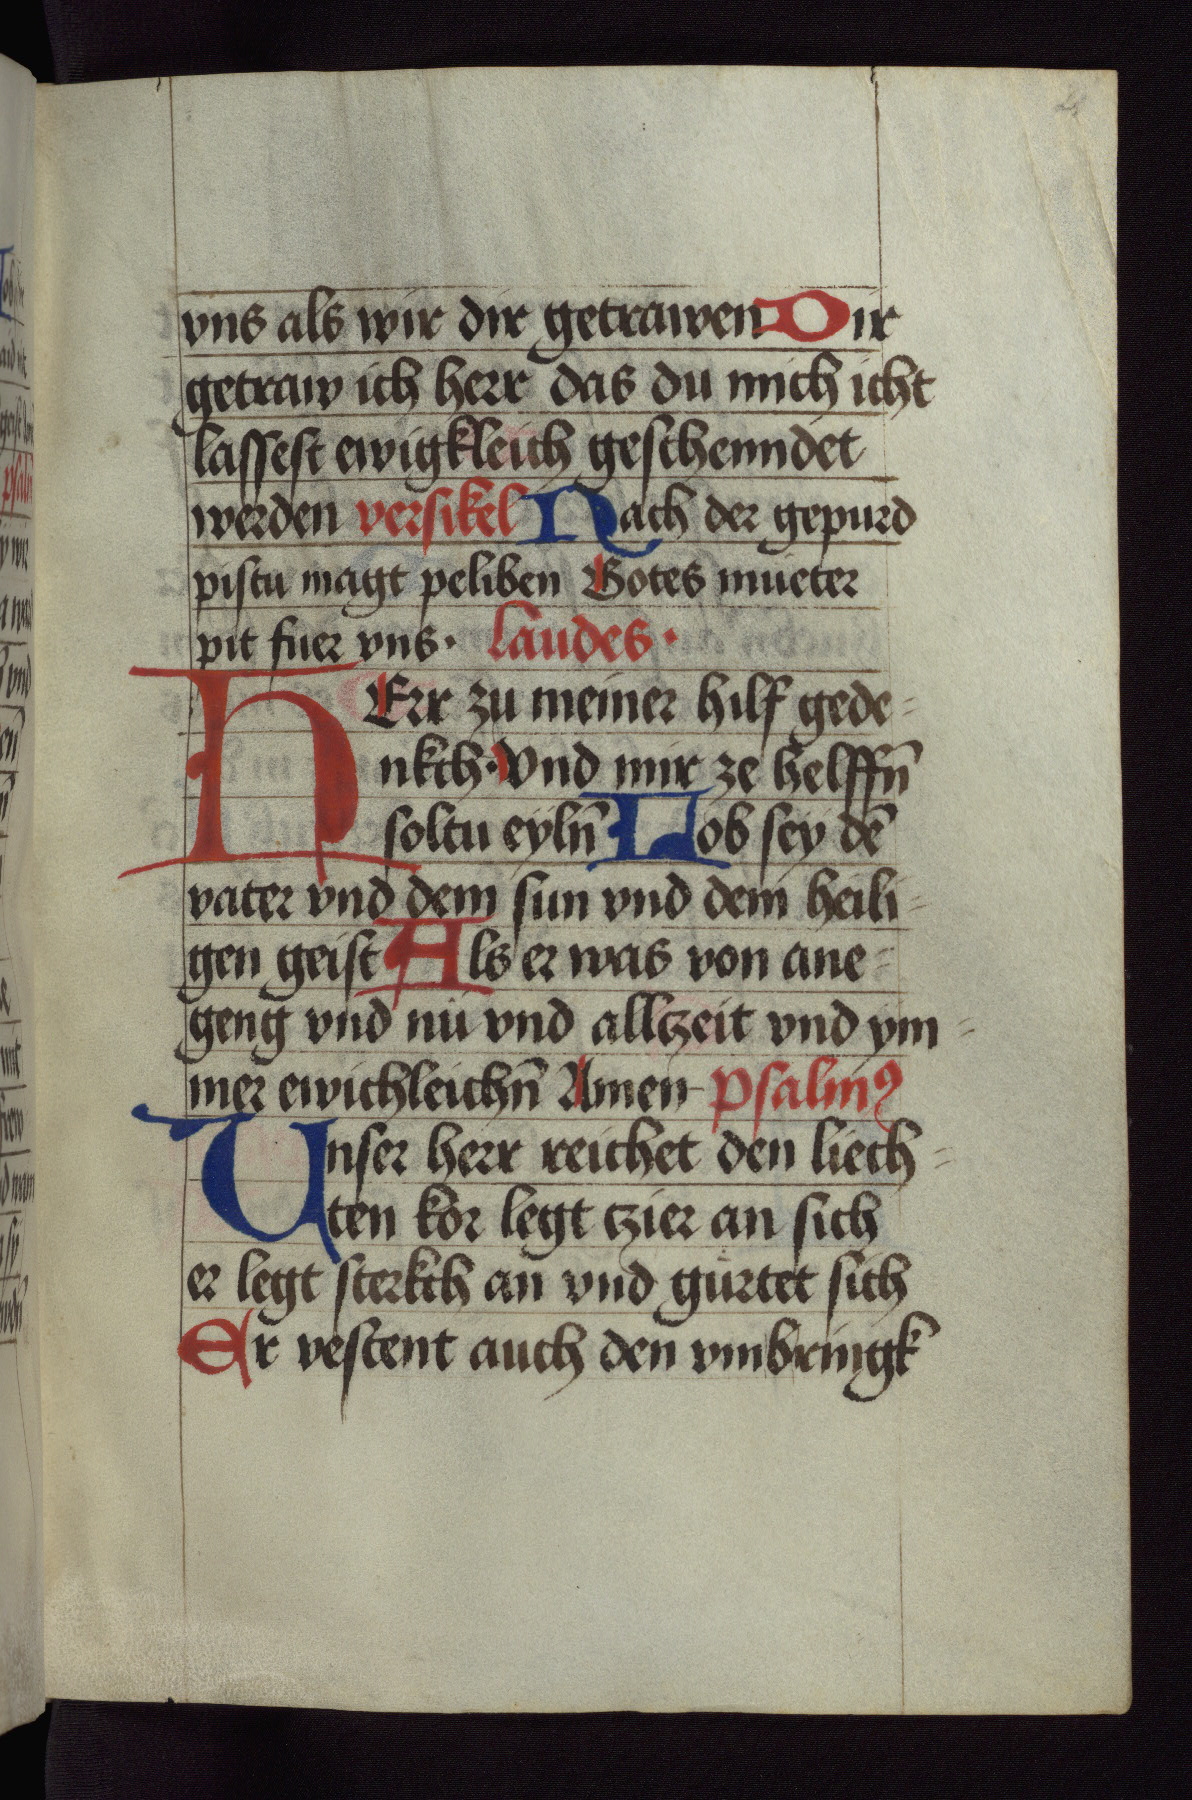 28
vns als wir dir getrawen Dir
getraw ich herr das du mich icht
lassest ewigkleich geschenndet
werden versikel Nach der gepurd
pistu magt peliben Gotes mueter
pit fuer vns· Laudes·
HErr zu meiner hilf gede-
nkch· Vnd mir ze helffn̄
soltu eyln̄ Lob sey dē
vater vnd dem sun vnd dem heili-
gen geist Als er was von ane-
geng vnd nü vnd alltzeit vnd ym-
mer ewichleichn̄ Amen psalmꝰ
Unser herr reichet den liech-
ten kor legt tzier an sich
er legt sterkch an vnd gürtet sich
Er vestent auch den vmbringk